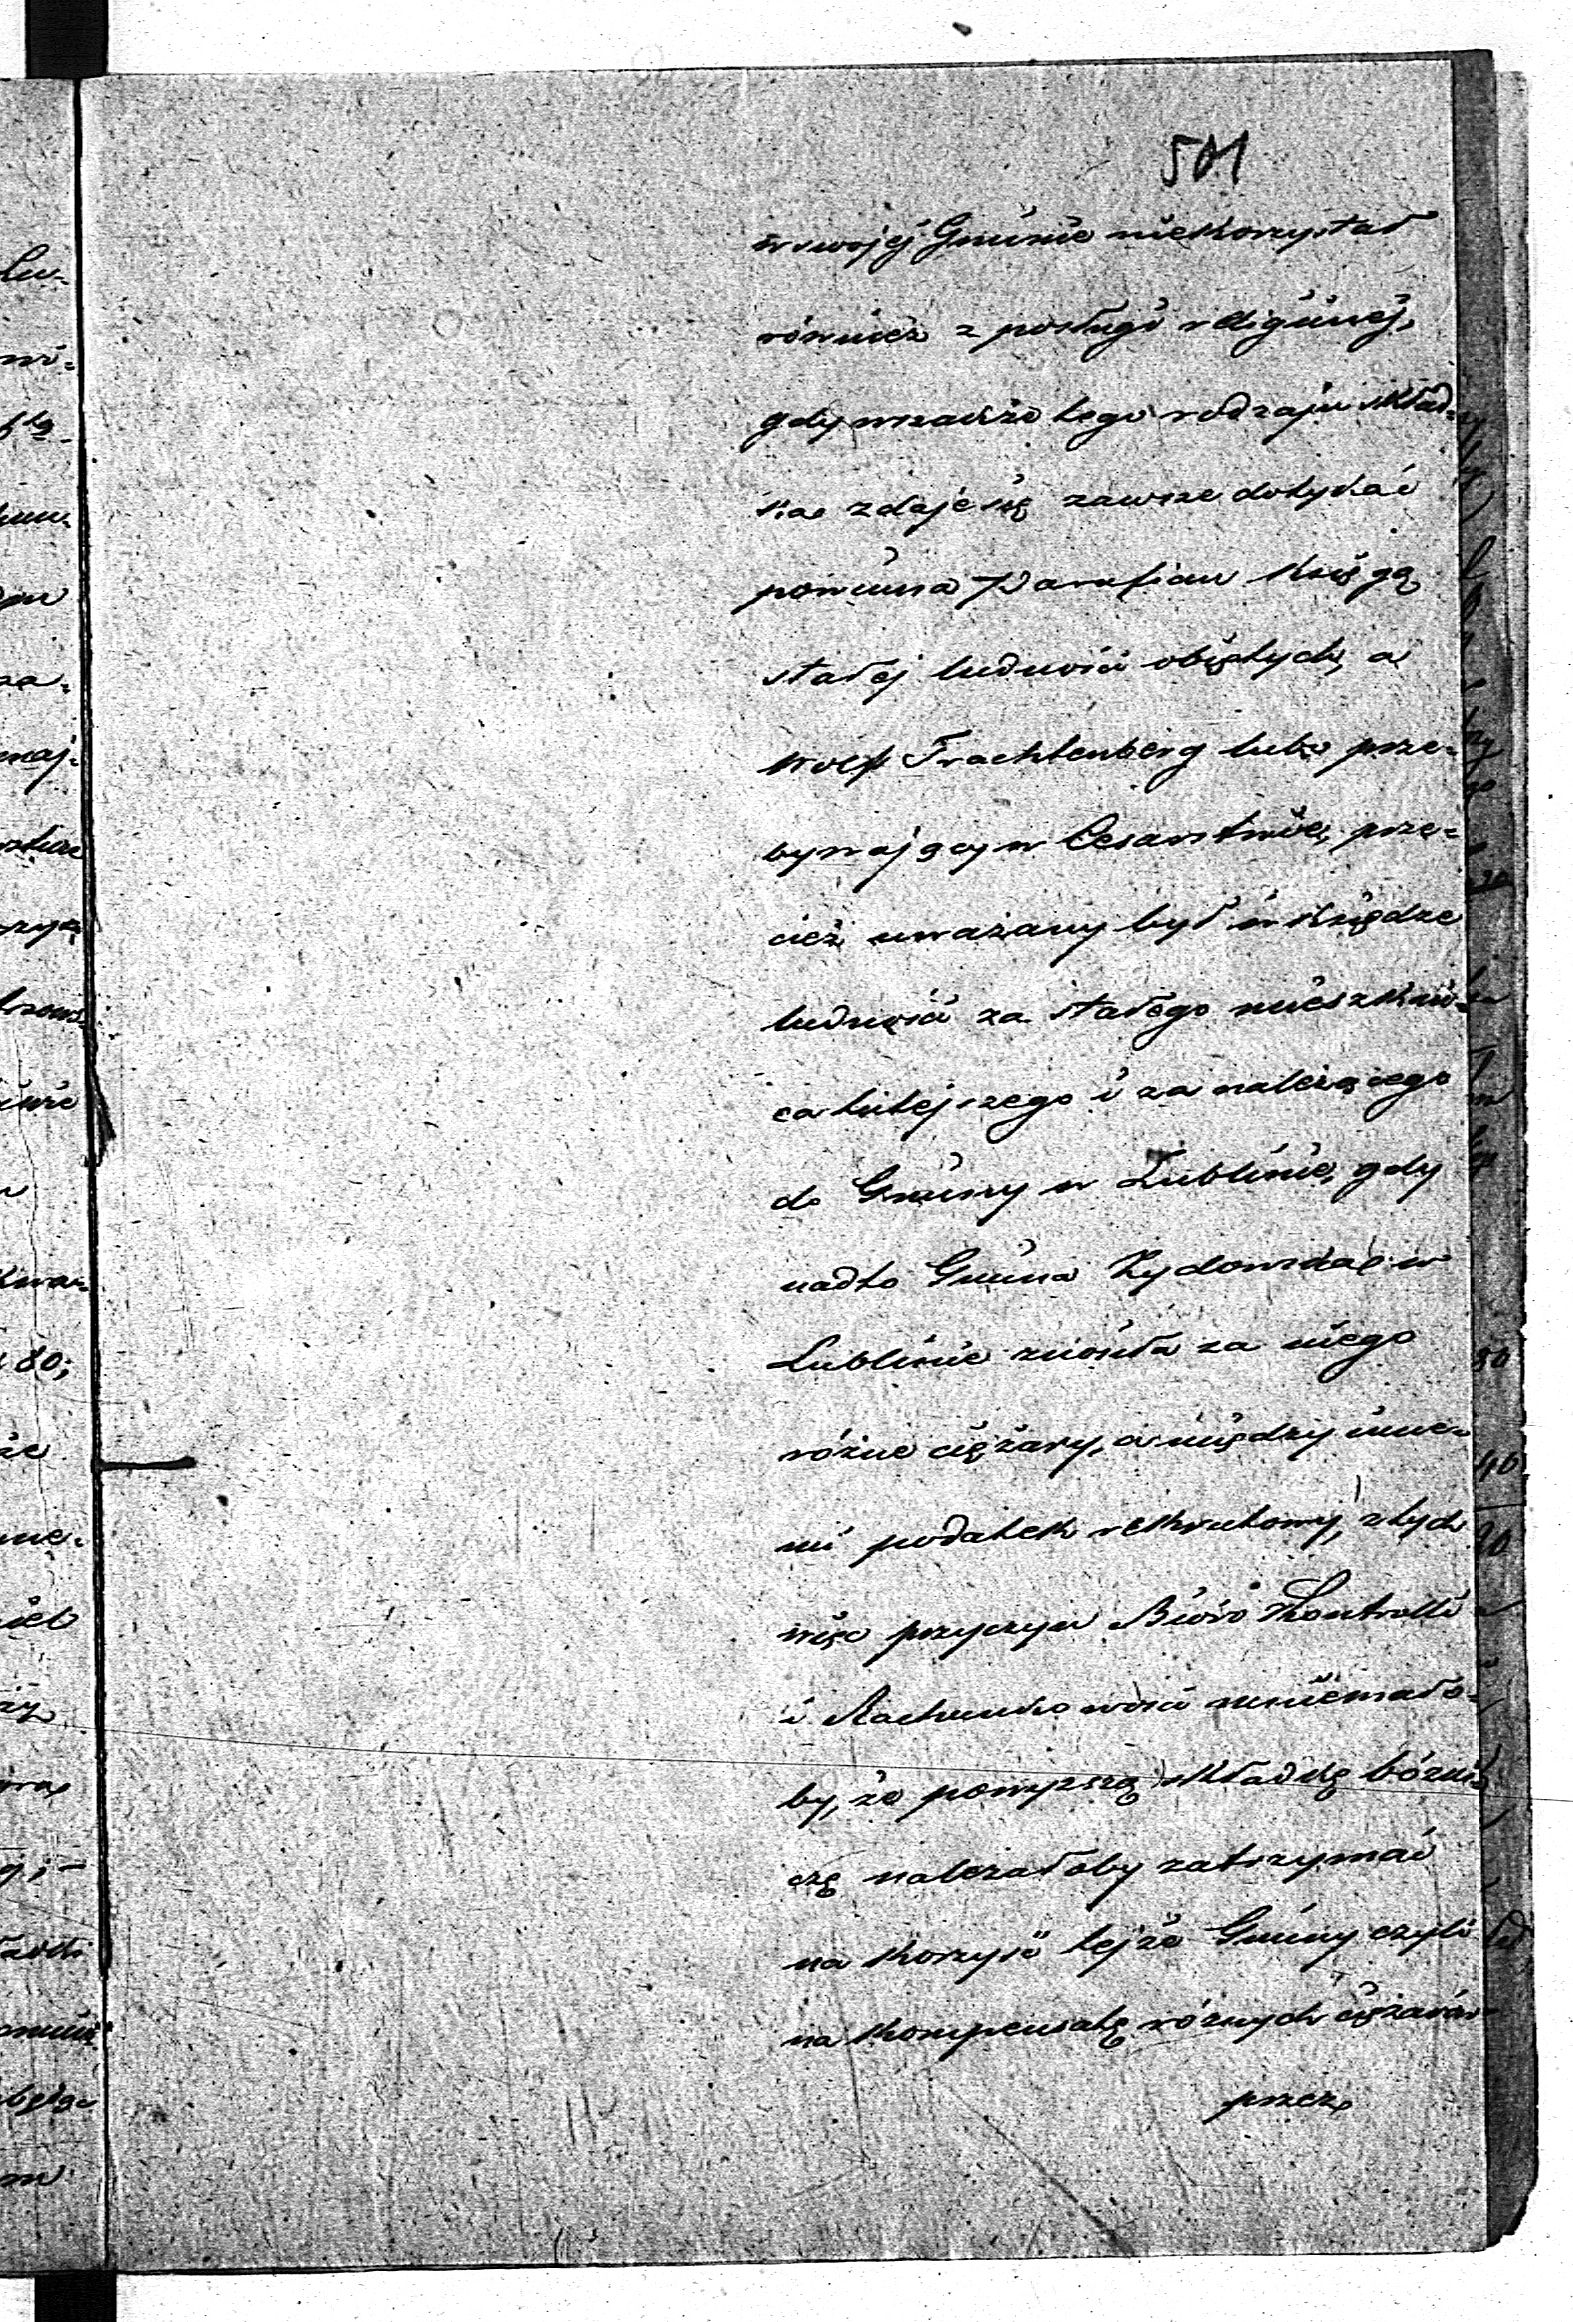 501
w swojej Gminie nie korzystał
również z posługi religijnej,
gdy wszakże tego rodzaju skład-
ka zdaje się zawsze dotykać
powinna Parafian księgą
stałej ludności objętych, a
Wolf Trachtenberg lubo prze-
bywający w Cesarstwie, prze-
cież uważany był w księdze
ludności za stałego mieszkań-
ca tutejszego i za należącego
do Gminy w Lublinie, gdy
nadto Gmina Żydowska w
Lublinie zniosła za niego
różne ciężary, a między inne-
mi podatek rekrutowy, z tych
więc przyczyn Biuro Kontrolli
i Rachunkowości mniemało-
by, że powyższą składkę bóźni-
czę należałoby zatrzymać
na korzyść tejże Gminy czyli
na kompensatę różnych ciężarów
przez